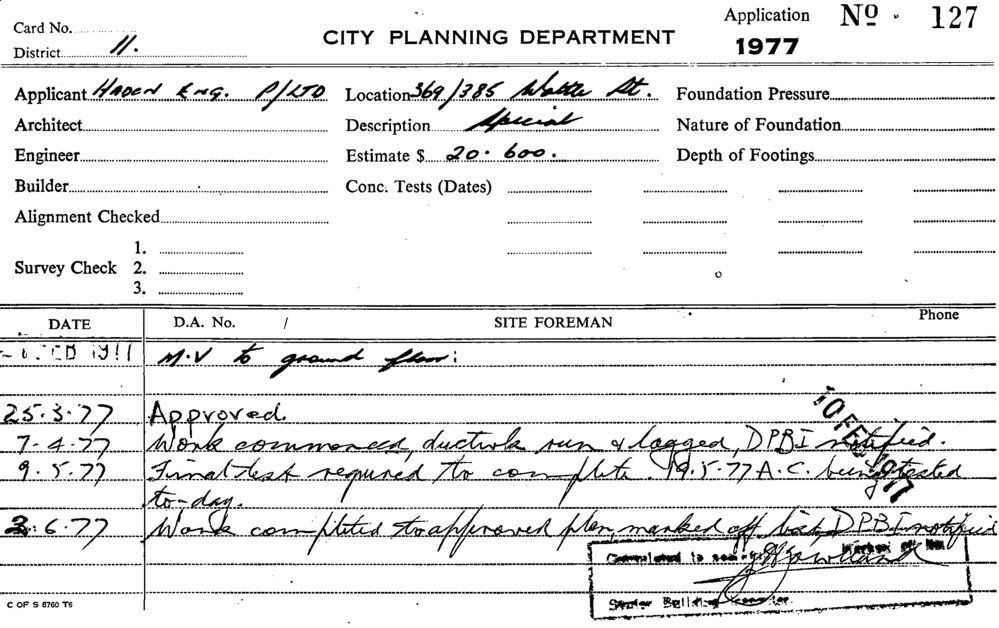 Card No.
District 11.
CITY PLANNING DEPARTMENT
Application Nº 127
1977
Applicant HADEN ENG. P/LTD
Location 369/385 Wattle St.
Foundation Pressure
Architect
Description Special
Nature of Foundation
Engineer
Estimate $ 20.600.
Depth of Footings
Builder
Conc. Tests (Dates)
Alignment Checked
Survey Check 1.
2.
3.
DATE D.A. No. / SITE FOREMAN Phone
FEB 1977 M.V to ground floor:
10 FEB 1977
25.3.77 Approved.
7.4.77 Work commenced, ductwk run & lagged, DPBI notified.
9.5.77 Final test required to complete. 19.5.77 A.C. being tested
to-day.
3.6.77 Work completed to approved plan, marked off list, DPBI notified
Completed to
Senior Building
C OF S 6760 T6